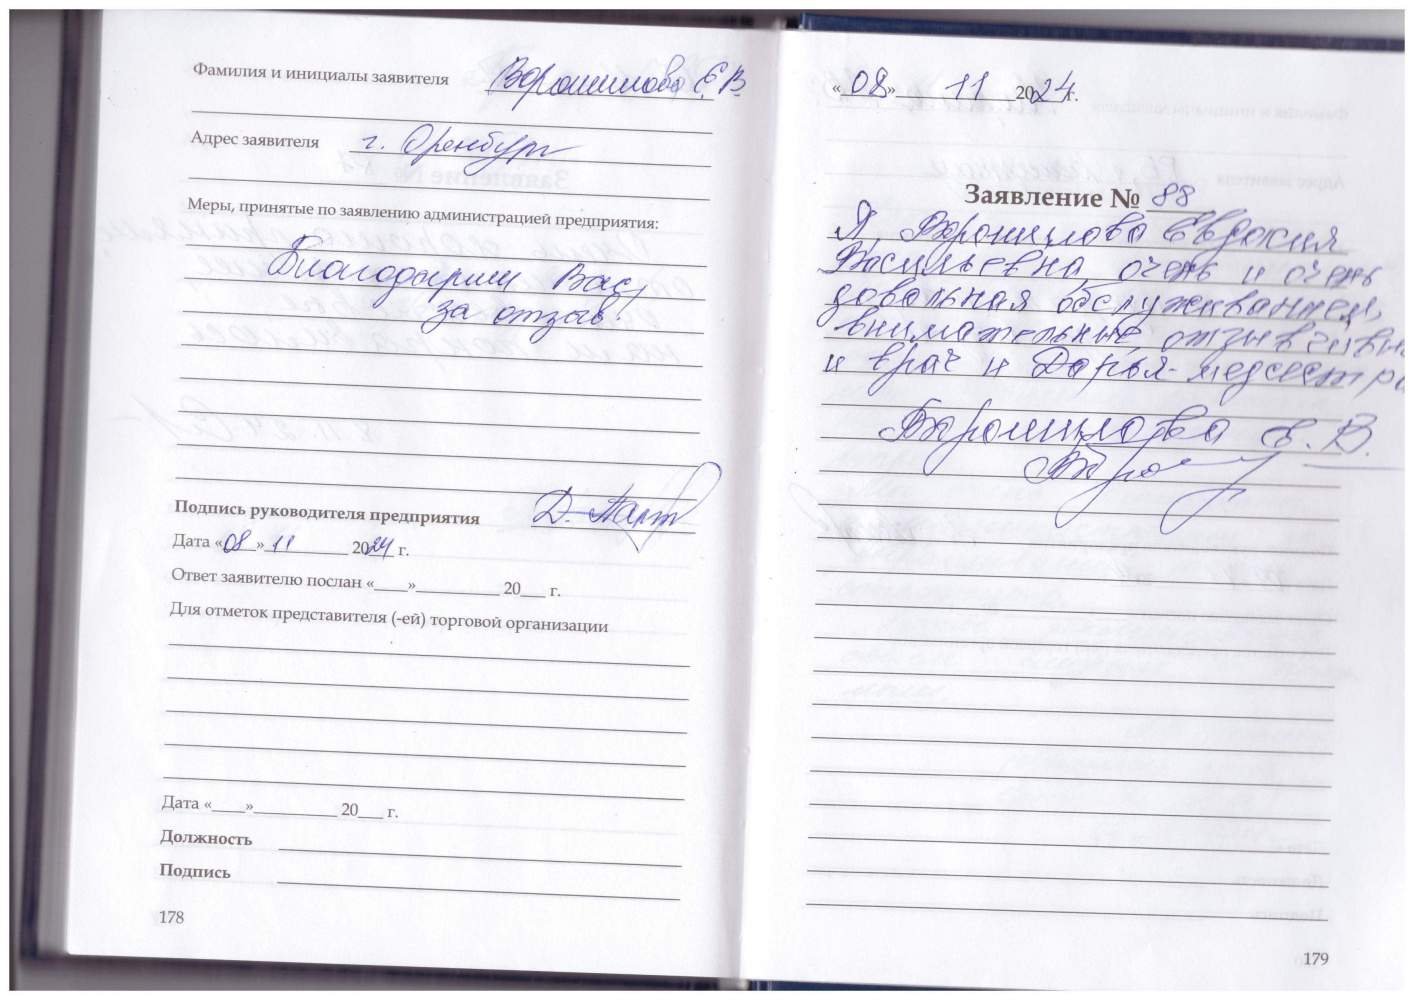 Фамилия и инициалы заявителя Ворошилова Е.В.
Адрес заявителя г. Оренбург
Меры, принятые по заявлению администрацией предприятия:
Благодарим Вас,
за отзыв!
Подпись руководителя предприятия
Дата «08» 11 2024 г.
Ответ заявителю послан «____»__________ 20___ г.
Для отметок представителя (-ей) торговой организации
Дата «____»__________ 20___ г.
Должность
Подпись
178
«08» 11 2024 г.
Заявление № 88
Я, Ворошилова Евдокия
Васильевна, очень и очень
довольная обслуживанием,
внимательные, отзывчивы
и врач и Дарья - медсестра
Ворошилова Е.В.
179